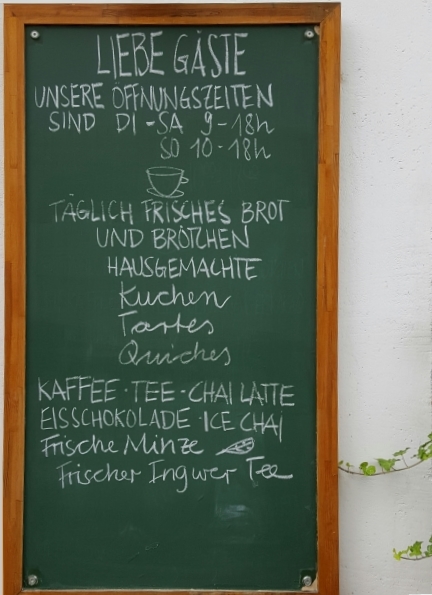 LIEBE GÄSTE
UNSERE ÖFFNUNGSZEITEN
SIND DI - SA 9 - 18h
SO 10 - 18h
TÄGLICH FRISCHES BROT
UND BRÖTCHEN
HAUSGEMACHTE
Kuchen
Tartes
Quiches
KAFFEE · TEE - CHAI LATTE
EISSCHOKOLADE · ICE CHAI
Frische Minze
Frischer Ingwer Tee